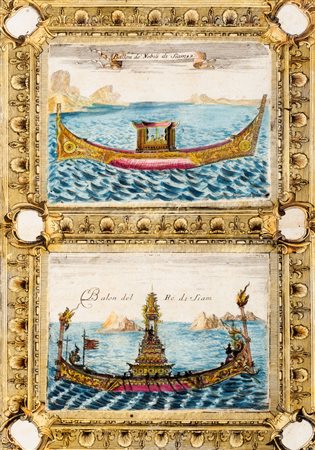 Ballon de Nobili di Siam
Balon del Re di Siam